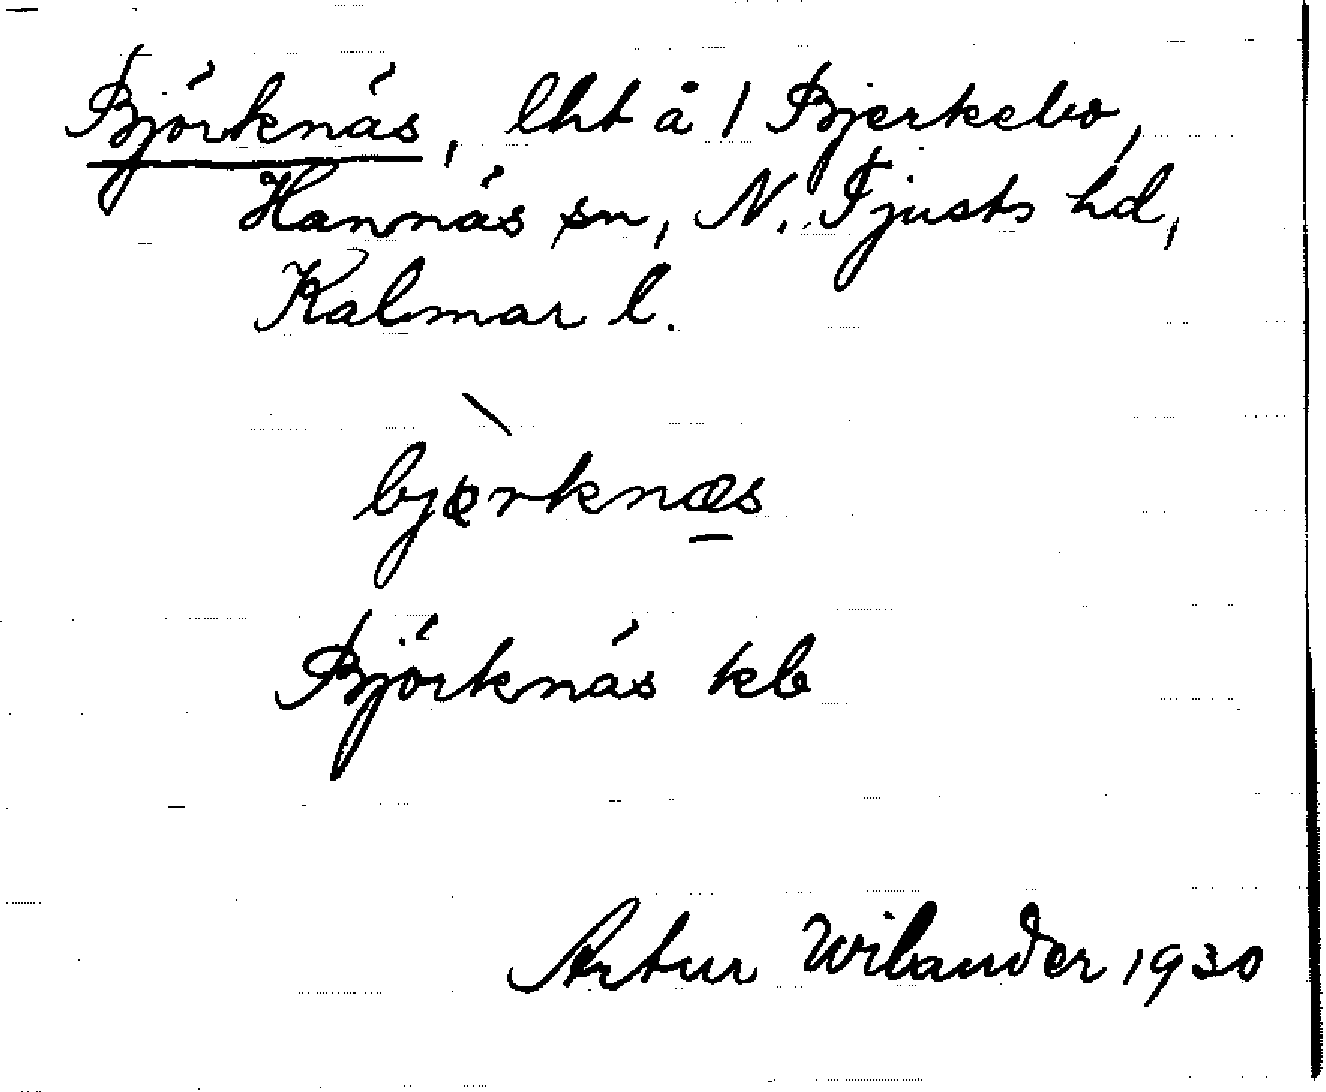 Björknäs, lht å 1 Bjerkebo,
Hannäs sn, N. Tjusts hd,
Kalmar l.
bjœ̀rknæs
Björknäs kb
Artur Wilander 1930